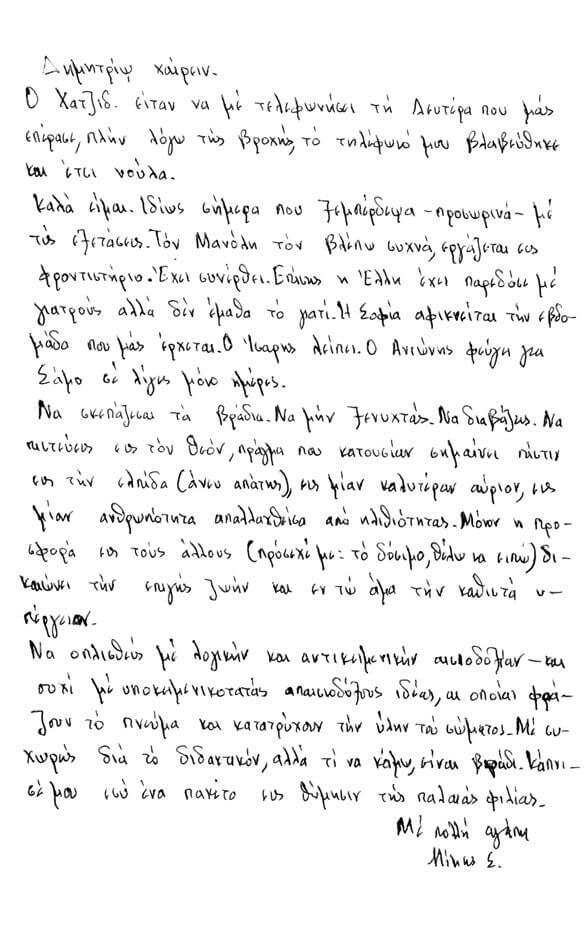 Δημητρίῳ χαίρειν.
Ο Χατζιδ. είταν να μέ τελεφωνήσει τή Δευτέρα που μάς
επέρασε, πλήν λόγω τής βροχής, τό τηλέφωνό μου βλαβεύθηκε
και έτσι νούλα.
Καλά είμαι. Ιδίως σήμερα που ξεμπέρδεψα - προσωρινά - μέ
τίς εξετάσεις. Τόν Μανόλη τόν βλέπω συχνά, εργάζεται εις
φροντιστήριο. Έχει συνέρθει. Επίσης η Έλλη έχει παρεδόσε μέ
γιατρούς αλλά δέν έμαθα το γιατί. Η Σοφία αφικνείται τήν εβδο-
μάδα που μάς έρχεται. Ο Ίσαρης λείπει. Ο Αντώνης φεύγει για
Σάμο σέ λίγες μόνο ημέρες.
Να σκεπάζεσαι τά βράδια. Να μήν ξενυχτάς. Να διαβάζεις. Να
πιστεύεις εις τόν θεόν, πράγμα που κατουσίαν σημαίνει πίστιν
εις τήν ελπίδα (άνευ απάτης), εις μίαν καλυτέραν αύριον, εις
μίαν ανθρωπότητα απαλλαχθείσα από ηλιθιότητας. Μόνον η προ-
σφορά εις τούς άλλους (πρόσεχέ με: τό δόσιμο, θέλω να ειπώ) δι-
καιώνει τήν επιγής ζωήν και εν τώ άμα τήν καθιστά υ-
πέργειαν.
Να οπλισθείς μέ λογικήν και αντικειμενικήν αισιοδοξίαν - και
ουχί μέ υποκειμενικοτατάς απαισιοδόξους ιδέας, αι οποίαι φρά-
ζουν τό πνεύμα και κατατρύχουν τήν ύλην τού σώματος. Μέ συ-
χωρείς διά τό διδακτικόν, αλλά τί να κάμω, είναι βράδι. Κάπνι-
σέ μου εσύ ένα πακέτο εις θύμησιν τής παλαιάς φιλίας.
Μέ πολλή αγάπη
Νίκος Σ.